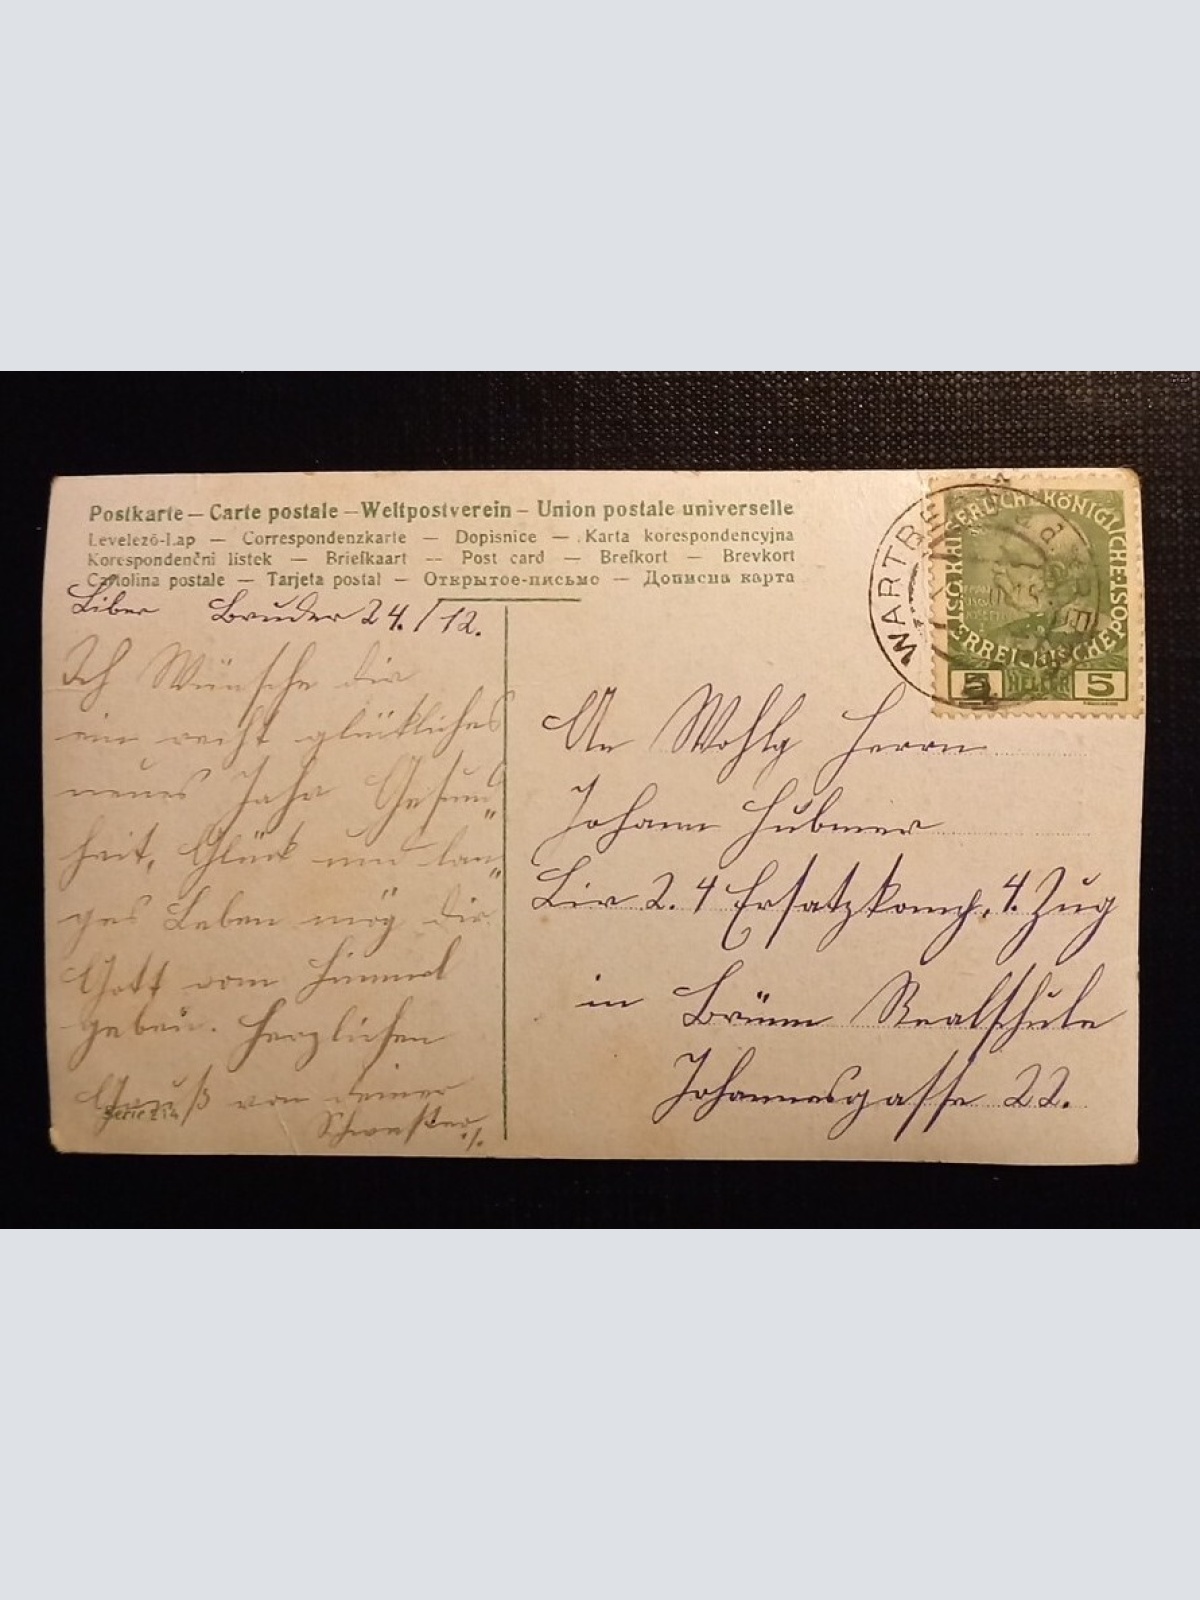 Postkarte – Carte postale – Weltpostverein – Union postale universelle
Levelező-Lap — Correspondenzkarte — Dopisnice — Karta korespondencyjna
Korespondenčni listek — Briefkaart — Post card — Brefkort — Brevkort
Cartolina postale — Tarjeta postal — Открытое-письмо — Дописна карта
Liber Bruder 24./12.
Ich Wünsche dir
ein recht glückliches
neues Jahr Gesun„
heit, Glück und lan„
ges Leben mög dir
Gott vom Himmel
geben. Herzlichen
Gruß von deiner
Schwester
Serie 214
WARTBE
KAISERLICHE KÖNIGLICHE ÖSTERREICHISCHE POST
5 HELLER 5
An Wohlg Herrn
Johann Hubmer
Lir 2. 4 Ersatzkomp. 4. Zug
in Brünn Realschule
Johannesgasse 22.